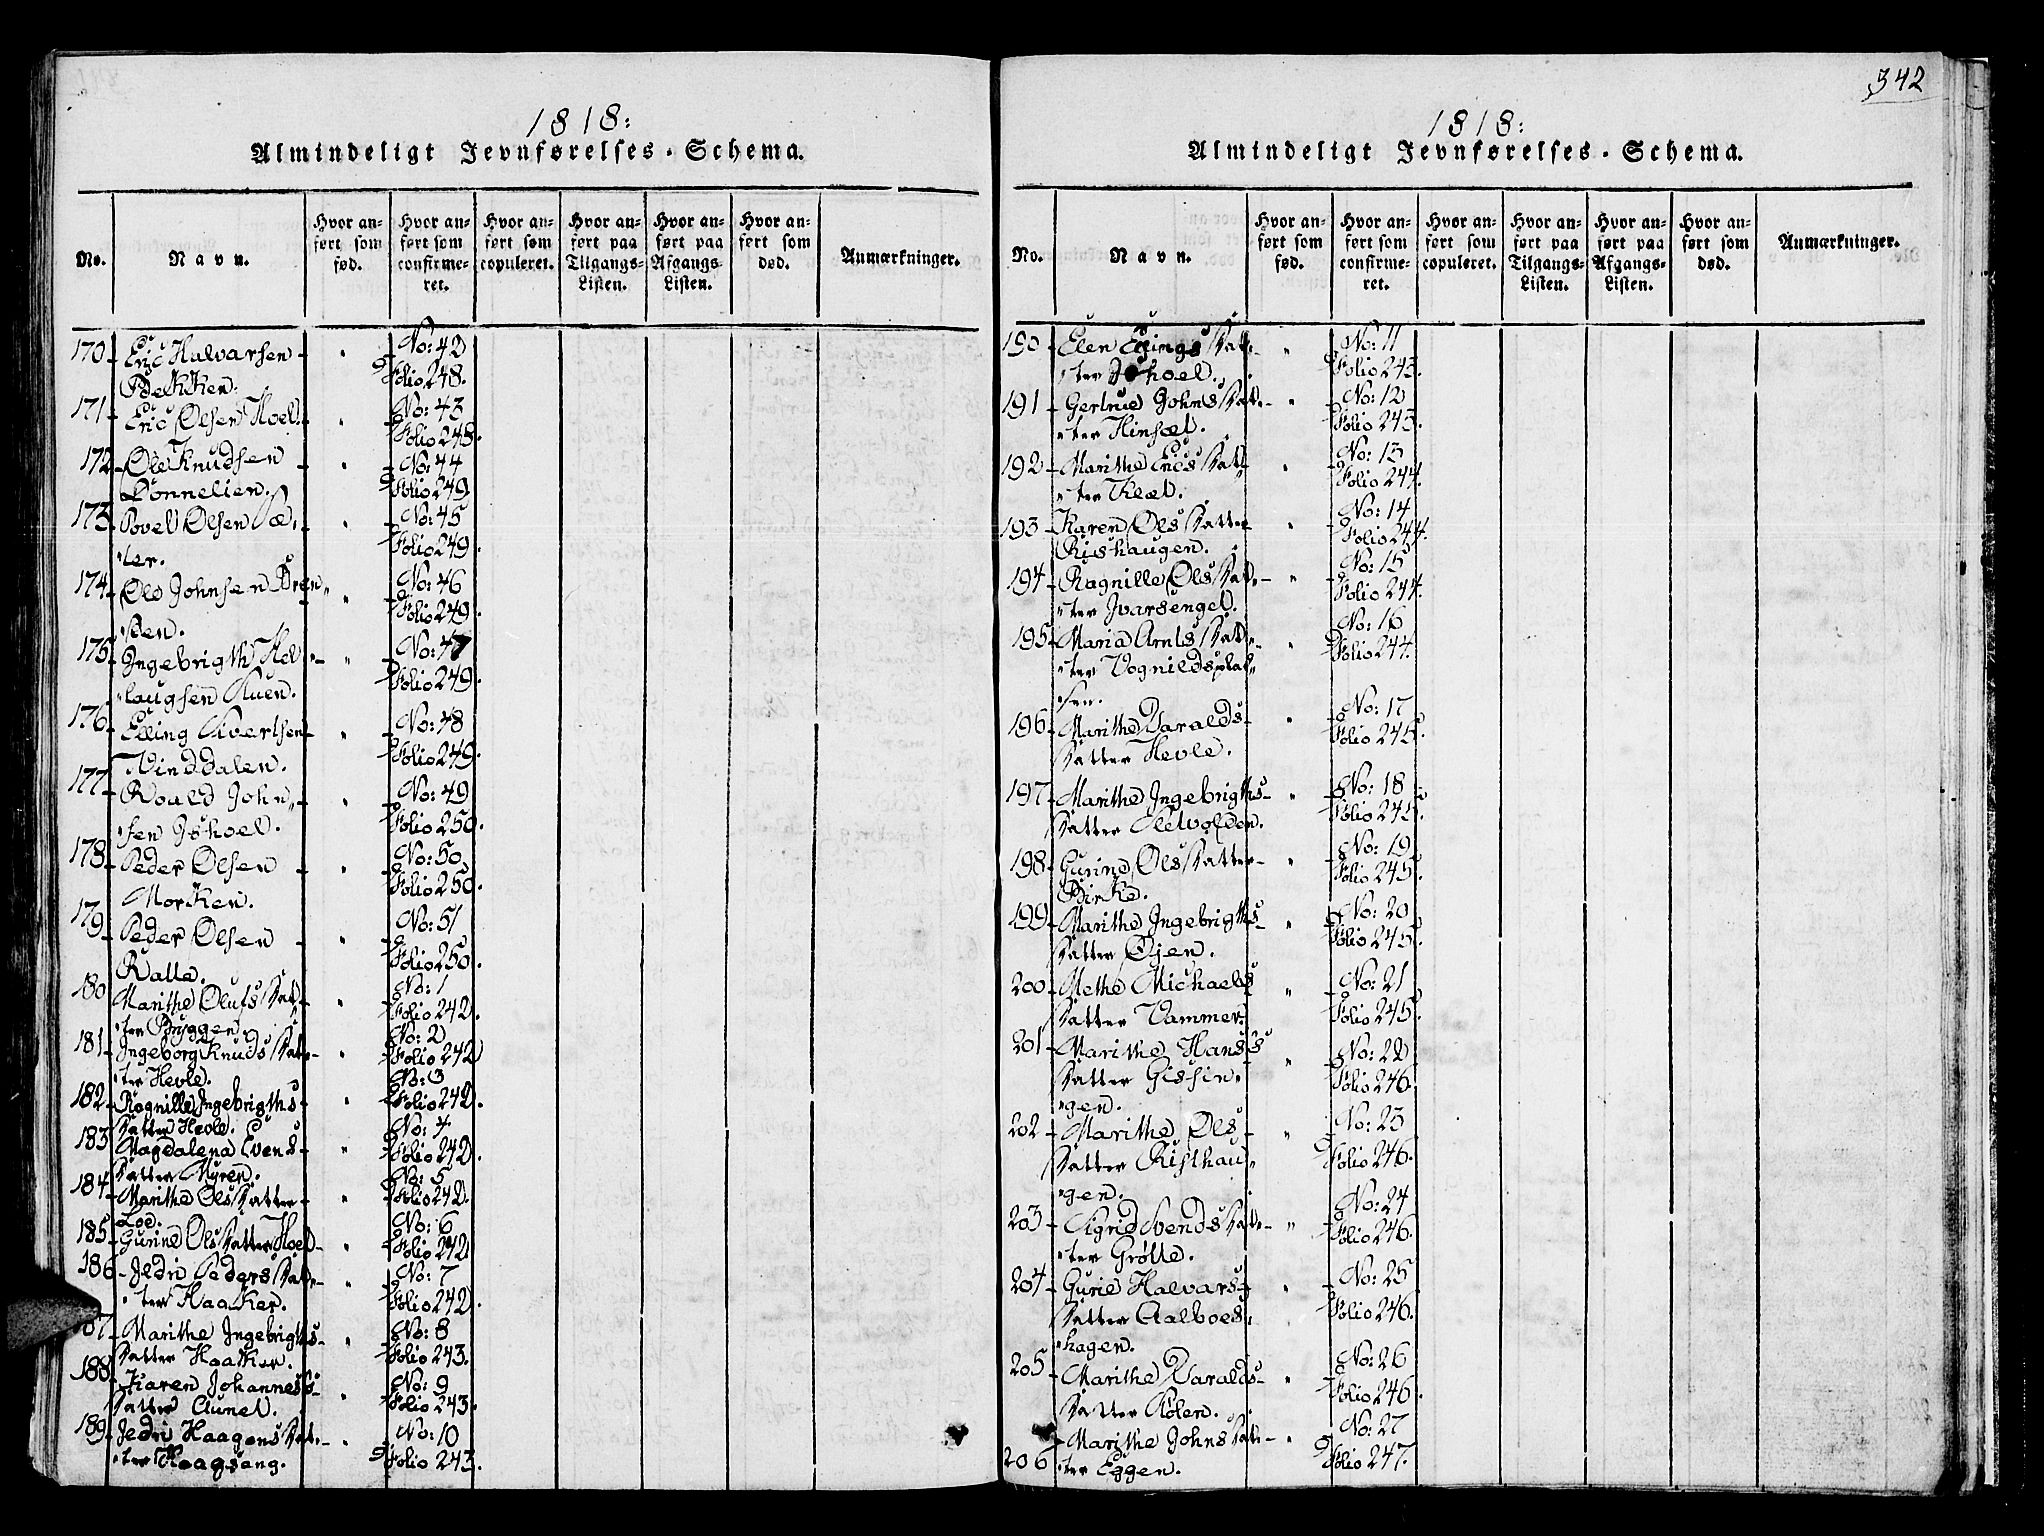 1818:
Almindeligt Jevnførelses-Schema.
No.
Navn.
Hvor an-
ført som
fød.
Hvor an-
ført som
confirme-
ret.
Hvor an-
ført som
copuleret.
Hvor an-
ført paa
Tilgangs-
Listen.
Hvor an-
ført paa
Afgangs-
Listen.
Hvor an-
ført som
død.
Anmærkninger.
170 Eric Halvarsen No: 42
Bekken. Folio 248.
171 Eric Olsen Hoel No: 43
Folio 248.
172 Ole Knudsen No: 44
Donnelien. Folio 249
173 Povel Olsen Sæ, No: 45
ter. Folio 249.
174 Ole Johnsen Bren No: 46
den. Folio 249.
175 Ingebrigth Hel No: 47
laugsen Folio 249.
176 Elling Sivertsen No: 48
Vinddalen. Folio 249.
177 Roald John, No: 49
sen Ishoel. Folio 250.
178 Peder Olsen No: 50
Morken. Folio 250.
179 Peder Olsen No: 51
Ralle. Folio 250.
180 Marithe Olufs Dat, No: 1
ter Byggen. Folio 242.
181 Ingeborg Knuds Dat, No: 2
ter Hevle. Folio 242
182 Ragnille Ingebrigths No: 3
Datter Hevle. Folio 242.
183 Magdalena Evens No: 4
Datter Myren. Folio 242.
184 Marithe Ols Datter No: 5
Loe. Folio 242
185 Gurine Ols Datter Hoel No: 6
Folio 242
186 Jedri Peders Dat, No: 7
ter Haaker. Folio 242.
187 Marithe Ingebrigths No: 8
Datter Haaker. Folio 243.
188 Karen Johannes No: 9
Datter Aunet. Folio 243.
189 Jedri Haagens Dat, No: 10
ter Haagsang. Folio 243.
342
1818:
Almindeligt Jevnførelses-Schema.
No.
Navn.
Hvor an-
ført som
fød.
Hvor an-
ført som
confirme-
ret.
Hvor an-
ført som
copuleret.
Hvor an-
ført paa
Tilgangs-
Listen.
Hvor an-
ført paa
Afgangs-
Listen.
Hvor an-
ført som
død.
Anmærkninger.
190 Elen Ellings Dat, No: 11
ter Ishoel. Folio 243.
191 Gertrue Johns Dat, No: 12
ter Hinsæt. Folio 243.
192 Marithe Erics Dat, No: 13
ter Klæt. Folio 244.
193 Karen Ols Datter No: 14
Rishaugen. Folio 244.
194 Ragnille Ols Dat, No: 15
ter Ivarsengel. Folio 244.
195 Maria Arnts Dat, No: 16
ter Vognildsplad Folio 244.
sen.
196 Marithe Haralds No: 17
Datter Hevle. Folio 245.
197 Marithe Ingebrigths No: 18
Datter Sletvolden. Folio 245.
198 Gurine Ols Datter No: 19
Birke. Folio 245.
199 Marithe Ingebrigths No: 20
Datter Øien. Folio 245.
200 Methe Michaels No: 21
Datter Vammer. Folio 245.
201 Marithe Hans No: 22
Datter Gissin, Folio 246.
gen.
202 Marithe Ols No: 23
Datter Risthau, Folio 246.
gen.
203 Sigrid Svends Dat, No: 24
ter Grötte. Folio 246.
204 Gurie Halvars No: 25
Datter Aalboes, Folio 246.
hagen.
205 Marithe Haralds No: 26
Datter Rölen. Folio 246.
206 Marithe Johns Dat, No: 27
ter Eggen. Folio 247.